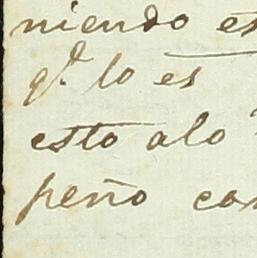 niendo es
qe lo es
esto alo
peño con